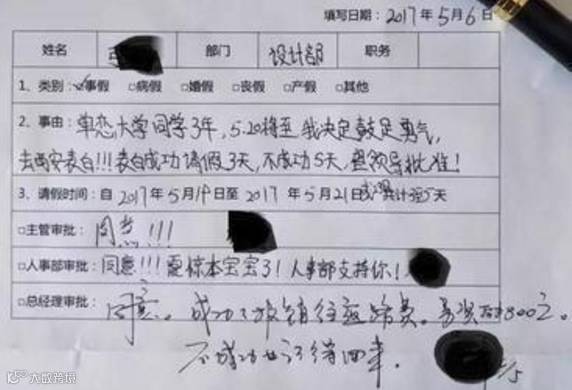 填写日期：2017年5月6日
姓名 部门 设计部 职务
1、类别：☑事假 □病假 □婚假 □丧假 □产假 □其他
2、事由：单恋大学同学3年，5.20将至 我决定鼓足勇气，
去西安表白!!!表白成功请假3天，不成功5天，望领导批准！
3、请假时间：自2017年5月19日至2017年5月21日 共计3至5天
□主管审批：同意!!!
□人事部审批：同意!!!震惊本宝宝了！人事部支持你！
□总经理审批：同意。成功了报销往返路费。另奖励800元。
不成功也记得回来。
大欧跨境